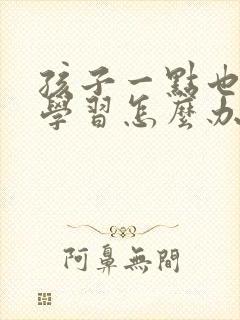 孩子一點也
學習怎麼办
阿鼻無間